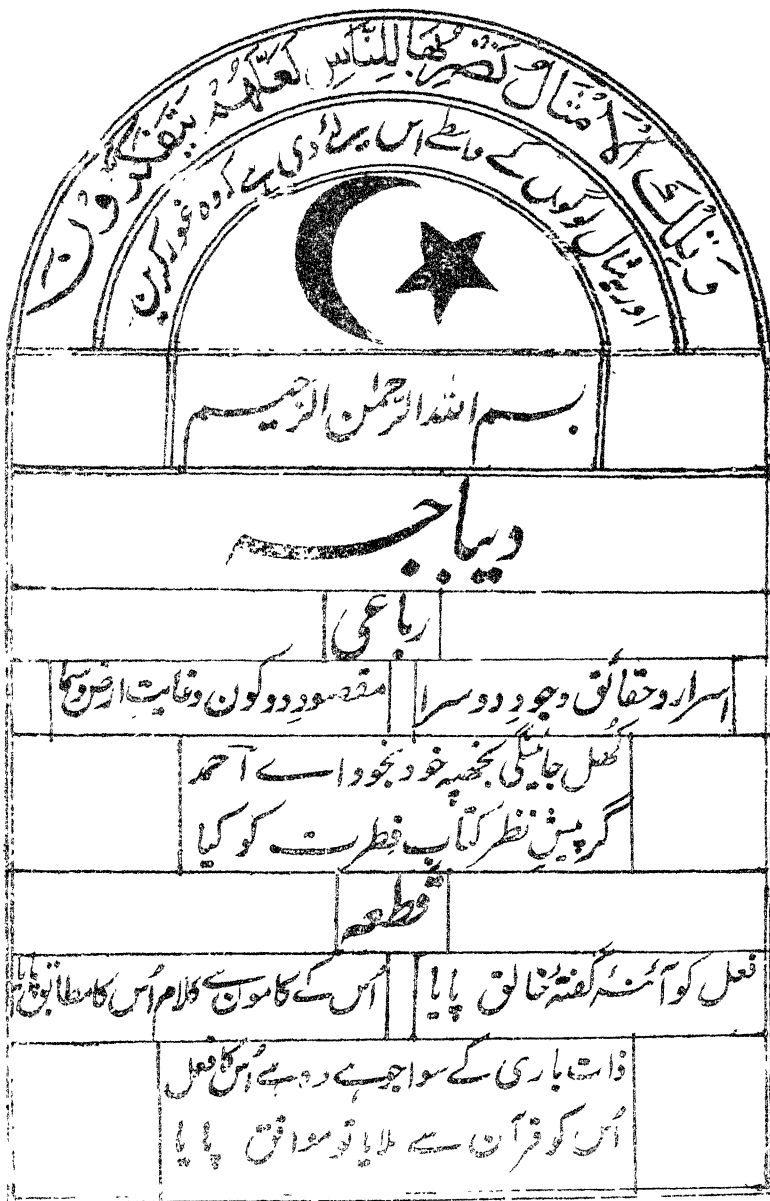 وَتِلْكَ الْأَمْثَالُ نَضْرِبُهَا لِلنَّاسِ لَعَلَّهُمْ يَتَفَكَّرُونَ
اور یہ مثال لوگوں کے واسطے اس دی ہے کہ وہ غور کریں
بسم اللہ الرحمٰن الرحیم
دیباجہ
رباعی
اسرار و حقائق وجودِ دوسرا مقصودِ دو کون و غایتِ ارض و سما
کُھل جائینگی تجھپہ خود بخود اے احمد
گر پیشِ نظر کتابِ فطرت کو کیا
قطعہ
فعل کو آئنۂ گفتۂ خالق پایا اُس کے کامون سے کلام اُس کا مطابق پایا
ذات باری کے سوا جو ہے وہ ہے اُس کا فعل
اُس کو قرآن سے ملایا تو موافق پایا